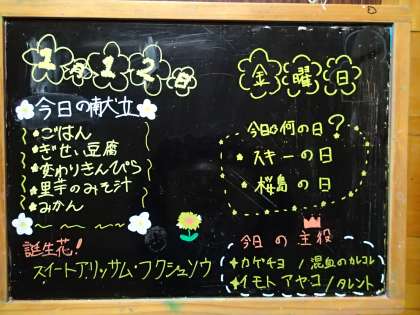 1月12日
金曜日
今日の献立
ごはん
ぎせい豆腐
変わりきんぴら
里芋のみそ汁
みかん
誕生花!
スイートアリッサム・フクジュソウ
今日は何の日?
スキーの日
桜島の日
今日の主役
カゲチヨ / 混血のカレコレ
イモトアヤコ / タレント